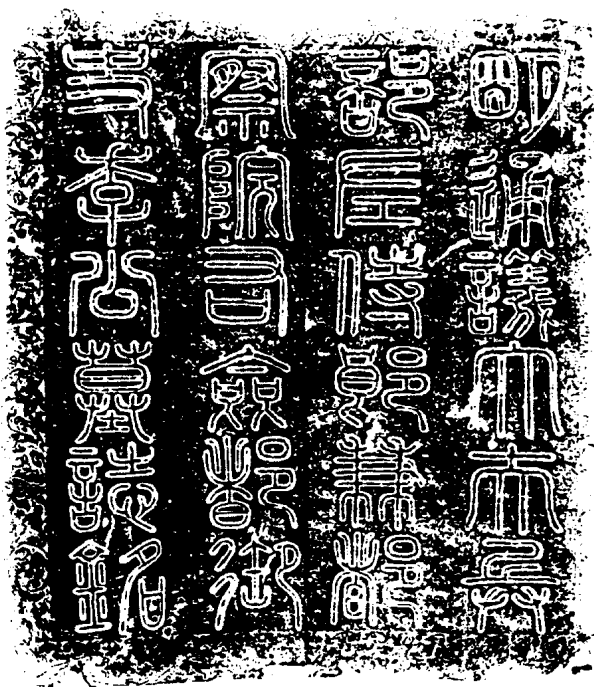 明通議大夫兵
部左侍郎兼都
察院右僉都御
史李公墓誌銘